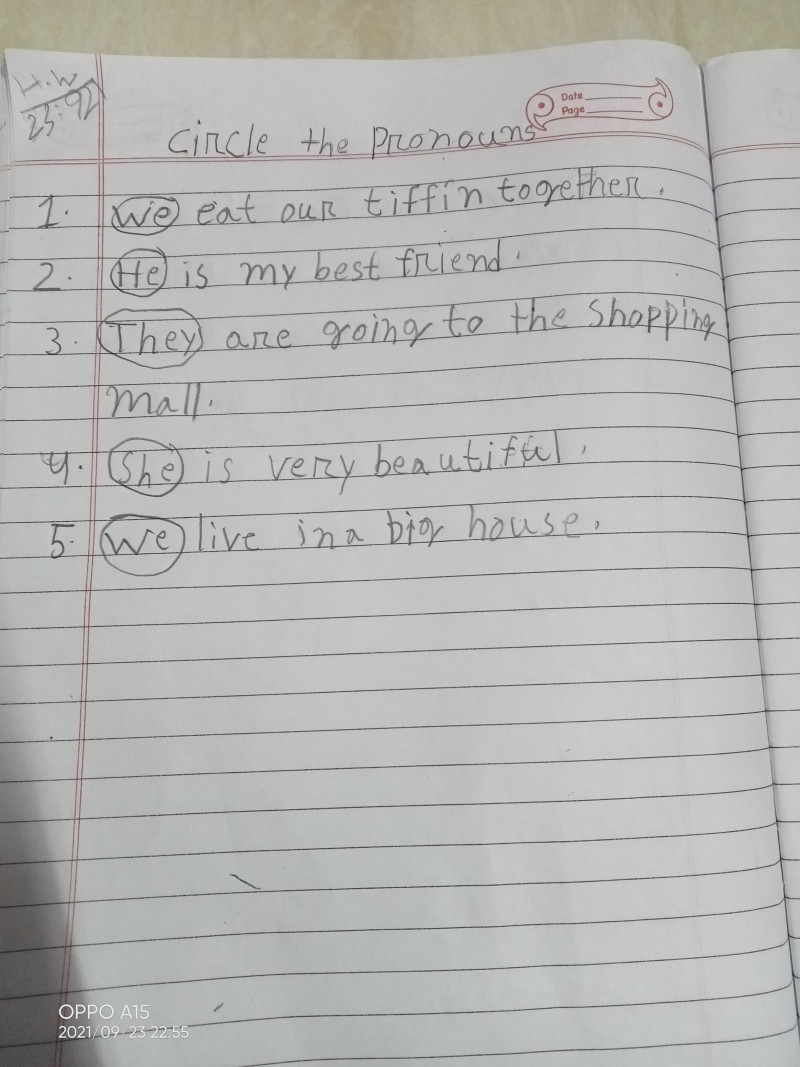 H.W
Date
23.92
Page
Circle the Pronouns
1. We eat our tiffin together.
2. He is my best friend.
3. They are going to the shopping
mall.
4. She is very beautiful.
5. We live in a big house.
OPPO A15
2021/09/23 22:55